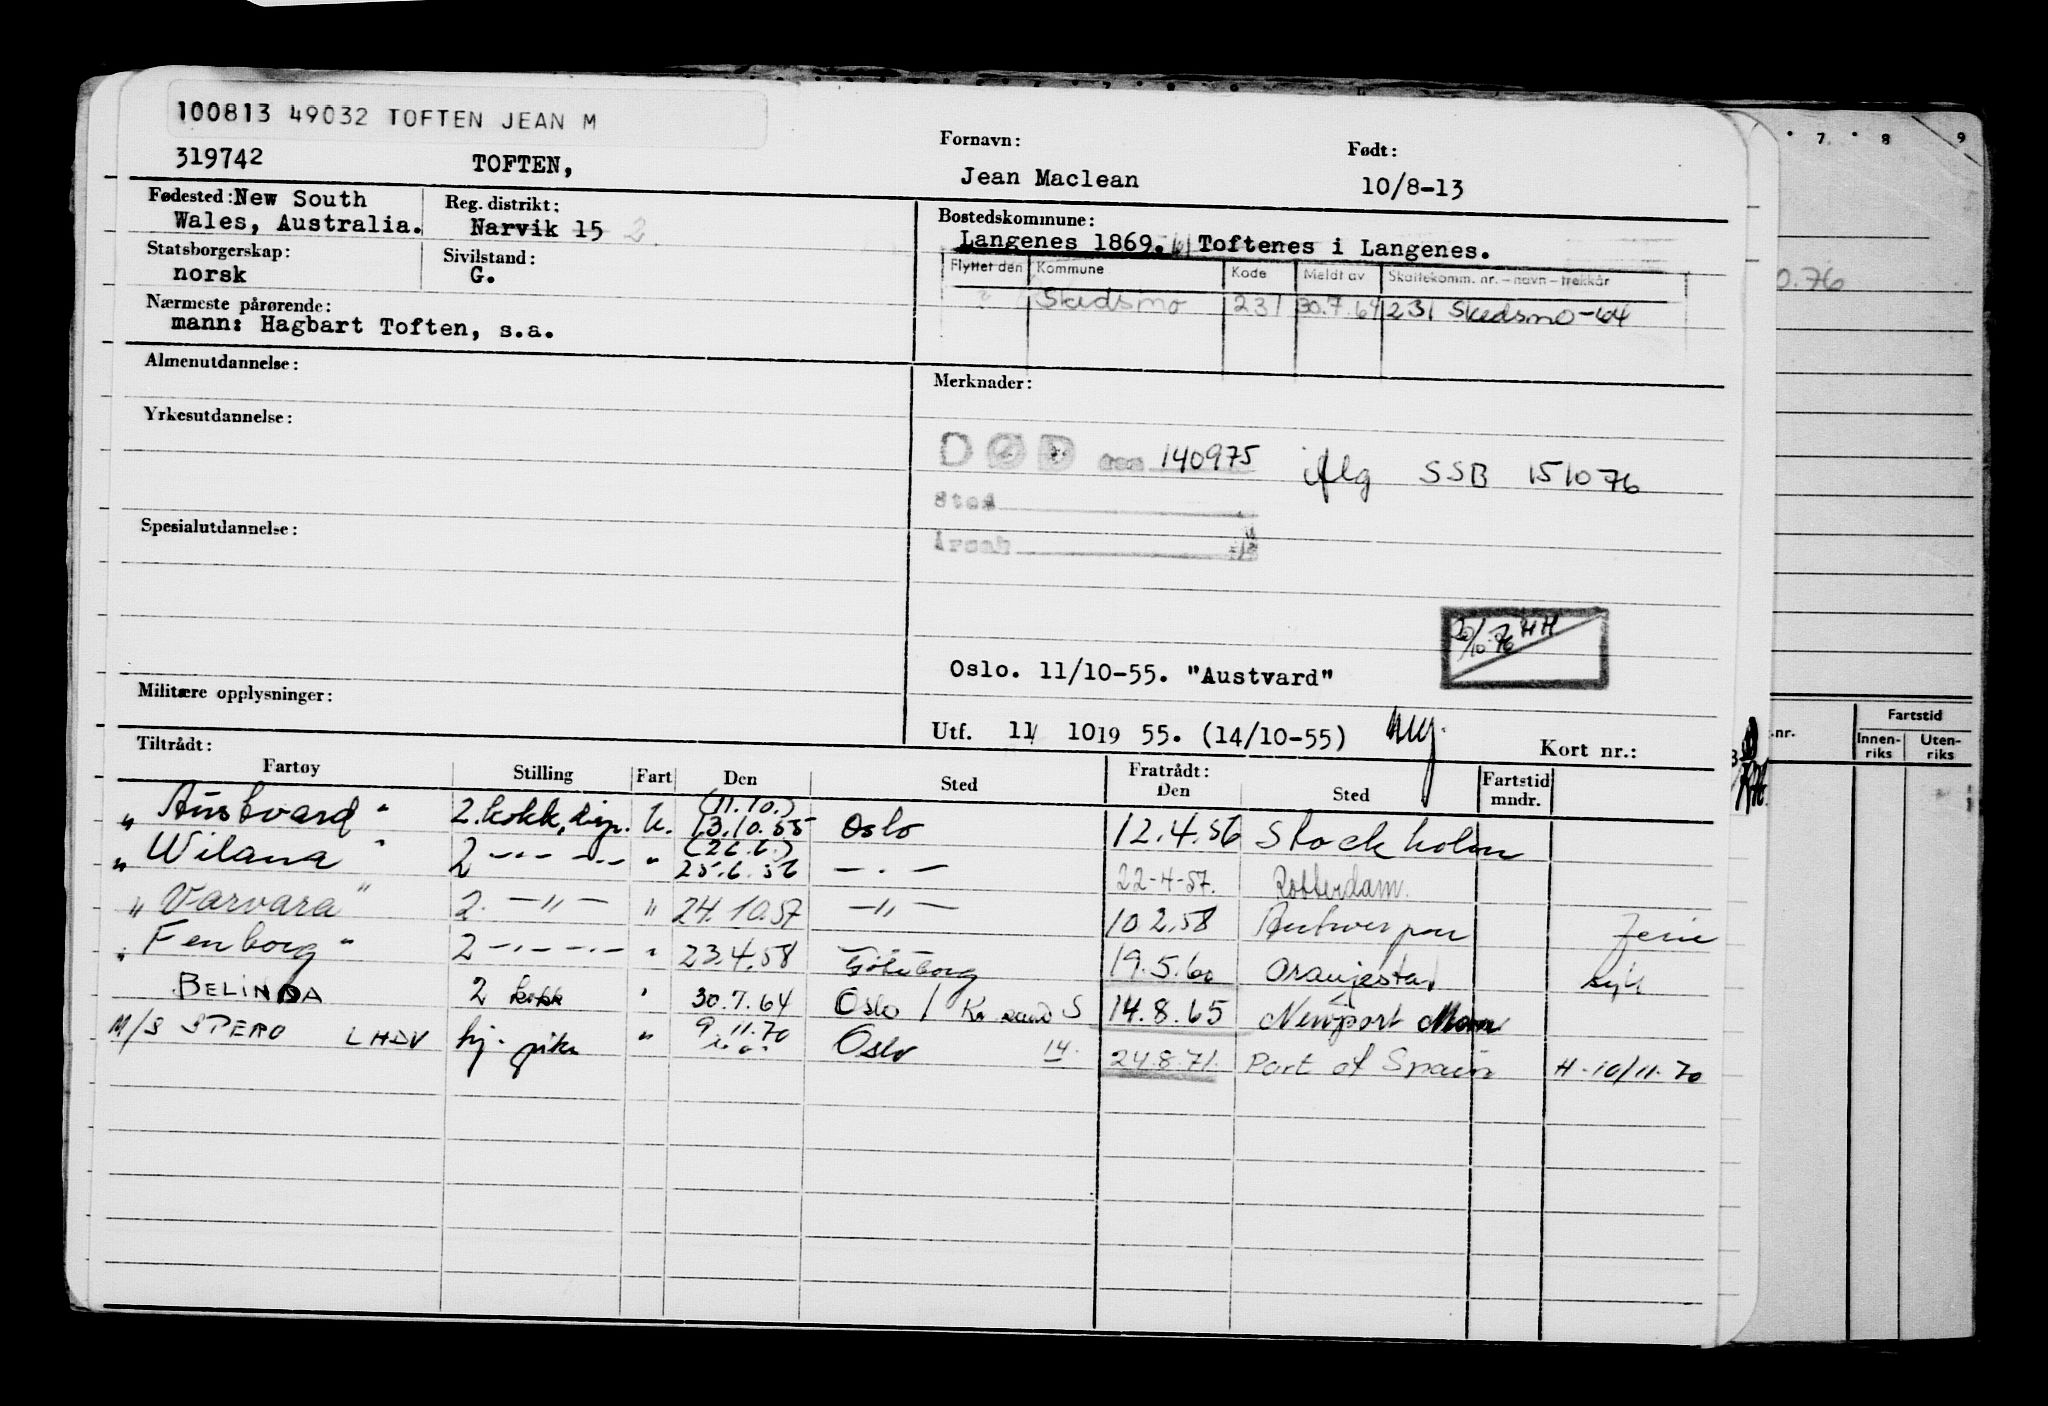 100813 49032 TOFTEN JEAN M
319742 TOFTEN,
Fornavn: Jean Maclean
Født: 10/8-13
Fødested: New South Wales, Australia.
Reg. distrikt: Narvik 15 2
Bostedskommune: Langenes 1869. Toftenes i Langenes.
Statsborgerskap: norsk
Sivilstand: G.
Flyttet den Kommune Kode Meldt av Skattekomm. nr. – navn – trekkår
Skedsmo 231 30.7.64 231 Skedsmo-64
Nærmeste pårørende: mann: Hagbart Toften, s.a.
Almenutdannelse:
Merknader:
Yrkesutdannelse:
DØD den 140975 SSB 151076
Sted
Årsak
Spesialutdannelse:
20/10-76 HH
Oslo. 11/10-55. "Austvard"
Militære opplysninger:
Utf. 11/ 10 19 55. (14/10-55)
Kort nr.:
Tiltrådt:
Fartøy Stilling Fart Den Sted Fratrådt: Den Sted Fartstid mndr.
„ Austvard " 2. kokk, disp. U. (11.10.) 13.10.55 Oslo 12.4.56 Stockholm
„ Wilana " 2 —"— —"— " (26.6.) 25.6.56 —"— 22-4-57. Rotterdam.
„ Varvara " 2. —"— " 24.10.57 —"— 10.2.58 Antwerpen Ferie
„ Fenborg " 2 —"— —"— " 23.4.58 Göteborg 19.5.60 Oranjestad syk
BELINDA 2 kokk " 30.7.64 Oslo / Kr.sand S 14.8.65 Newport Mon
M/S SPERO LHDV " 9.11.70 Oslo 14. 24.8.71. Port of Spain H. 10/11.70
7 8 9
0.76
.nr.
Fartstid
Innen-riks Uten-riks